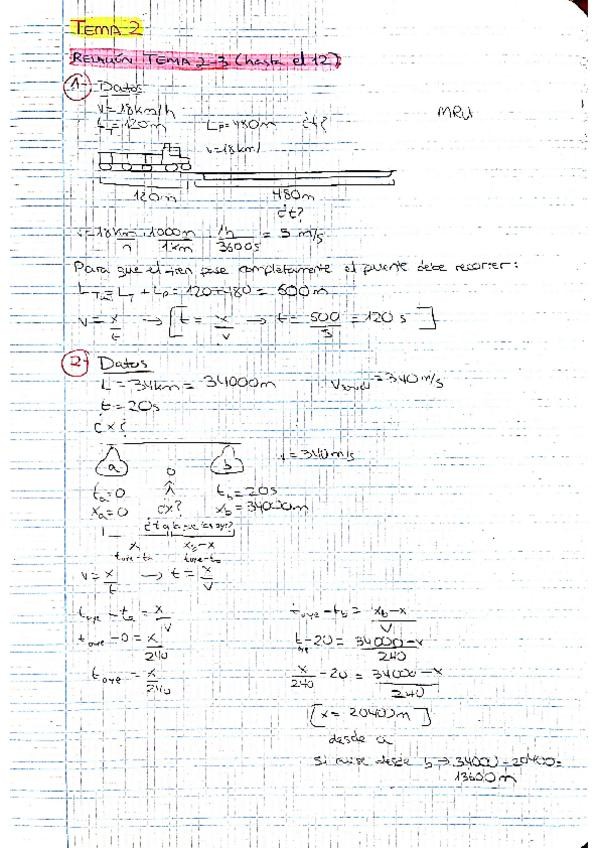 TEMA 2
RELACIÓN TEMA 2-3 (hasta el 12)
1- Datos
v = 18 km/h
MRU
L_T = 120 m L_P = 480 m ¿t?
v = 18 km/
120 m 480 m
¿t?
v = 18 km/h · 1000 m/1 km · 1h/3600 s = 5 m/s
Para que el tren pase completamente el puente debe recorrer:
= L_T + L_P = 120 + 480 = 600 m
v = x/t → [t = x/v → t = 600/5 = 120 s]
2- Datos
L = 34 km = 34000 m = 340 m/s
t = 20 s
¿x?
a b v = 340 m/s
t_a = 0 t_b = 20 s
x_a = 0 ¿x? x_b = 34000 m
x_b - x
v = x/t → t = x/v
t_oye - t_a = x/v t_oye - t_b = x_b - x/v
t_oye - 0 = x/340 t_oye - 20 = 34000 - x/340
t_oye = x/340 x/340 - 20 = 34000 - x/340
[x = 20400 m]
desde a
si mise desde b → 34000 - 20400 =
13600 m